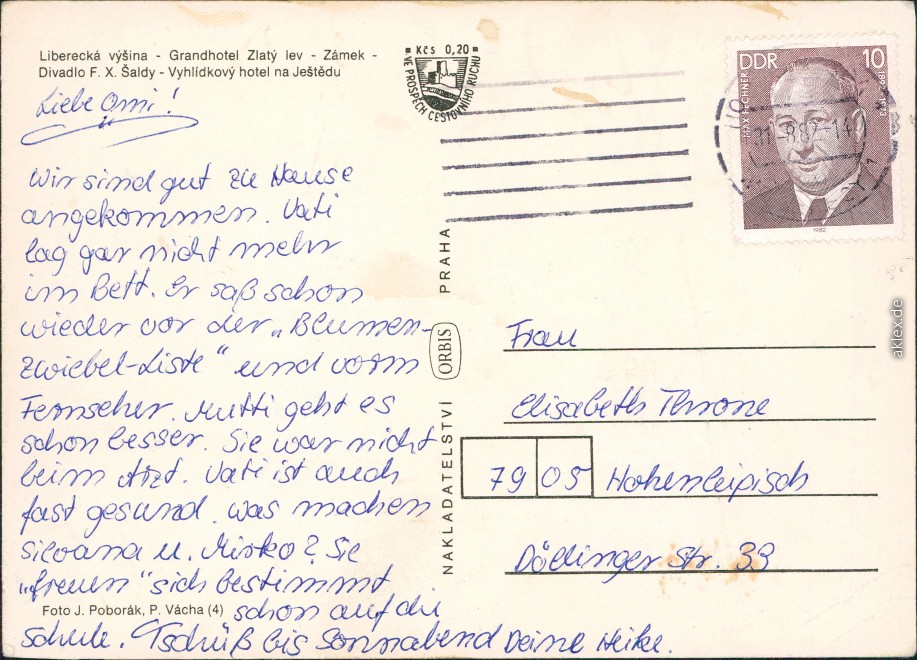 Liberecká výšina - Grandhotel Zlatý lev - Zámek -
Divadlo F. X. Šaldy - Vyhlídkový hotel na Ještědu
Liebe Omi!
Wir sind gut zu Hause
angekommen. Vati
lag gar nicht mehr
im Bett. Er saß schon
wieder vor der „Blumen-
zwiebel-Liste“ und vorm
Fernseher. Mutti geht es
schon besser. Sie war nicht
beim Arzt. Vati ist auch
fast gesund. Was machen
Silvana u. Mirko? Sie
„freuen“ sich bestimmt
schon auf die
Schule. Tschüß bis Sonnabend Deine Heike.
Foto J. Poborák, P. Vácha (4)
Kčs 0,20
VE PROSPĚCH CESTOVNÍHO RUCHU
NAKLADATELSTVÍ ORBIS PRAHA
DDR 10
1982
Frau
Elisabeth Throne
7905 Hohenleipisch
Döllinger Str. 33
aklex.de